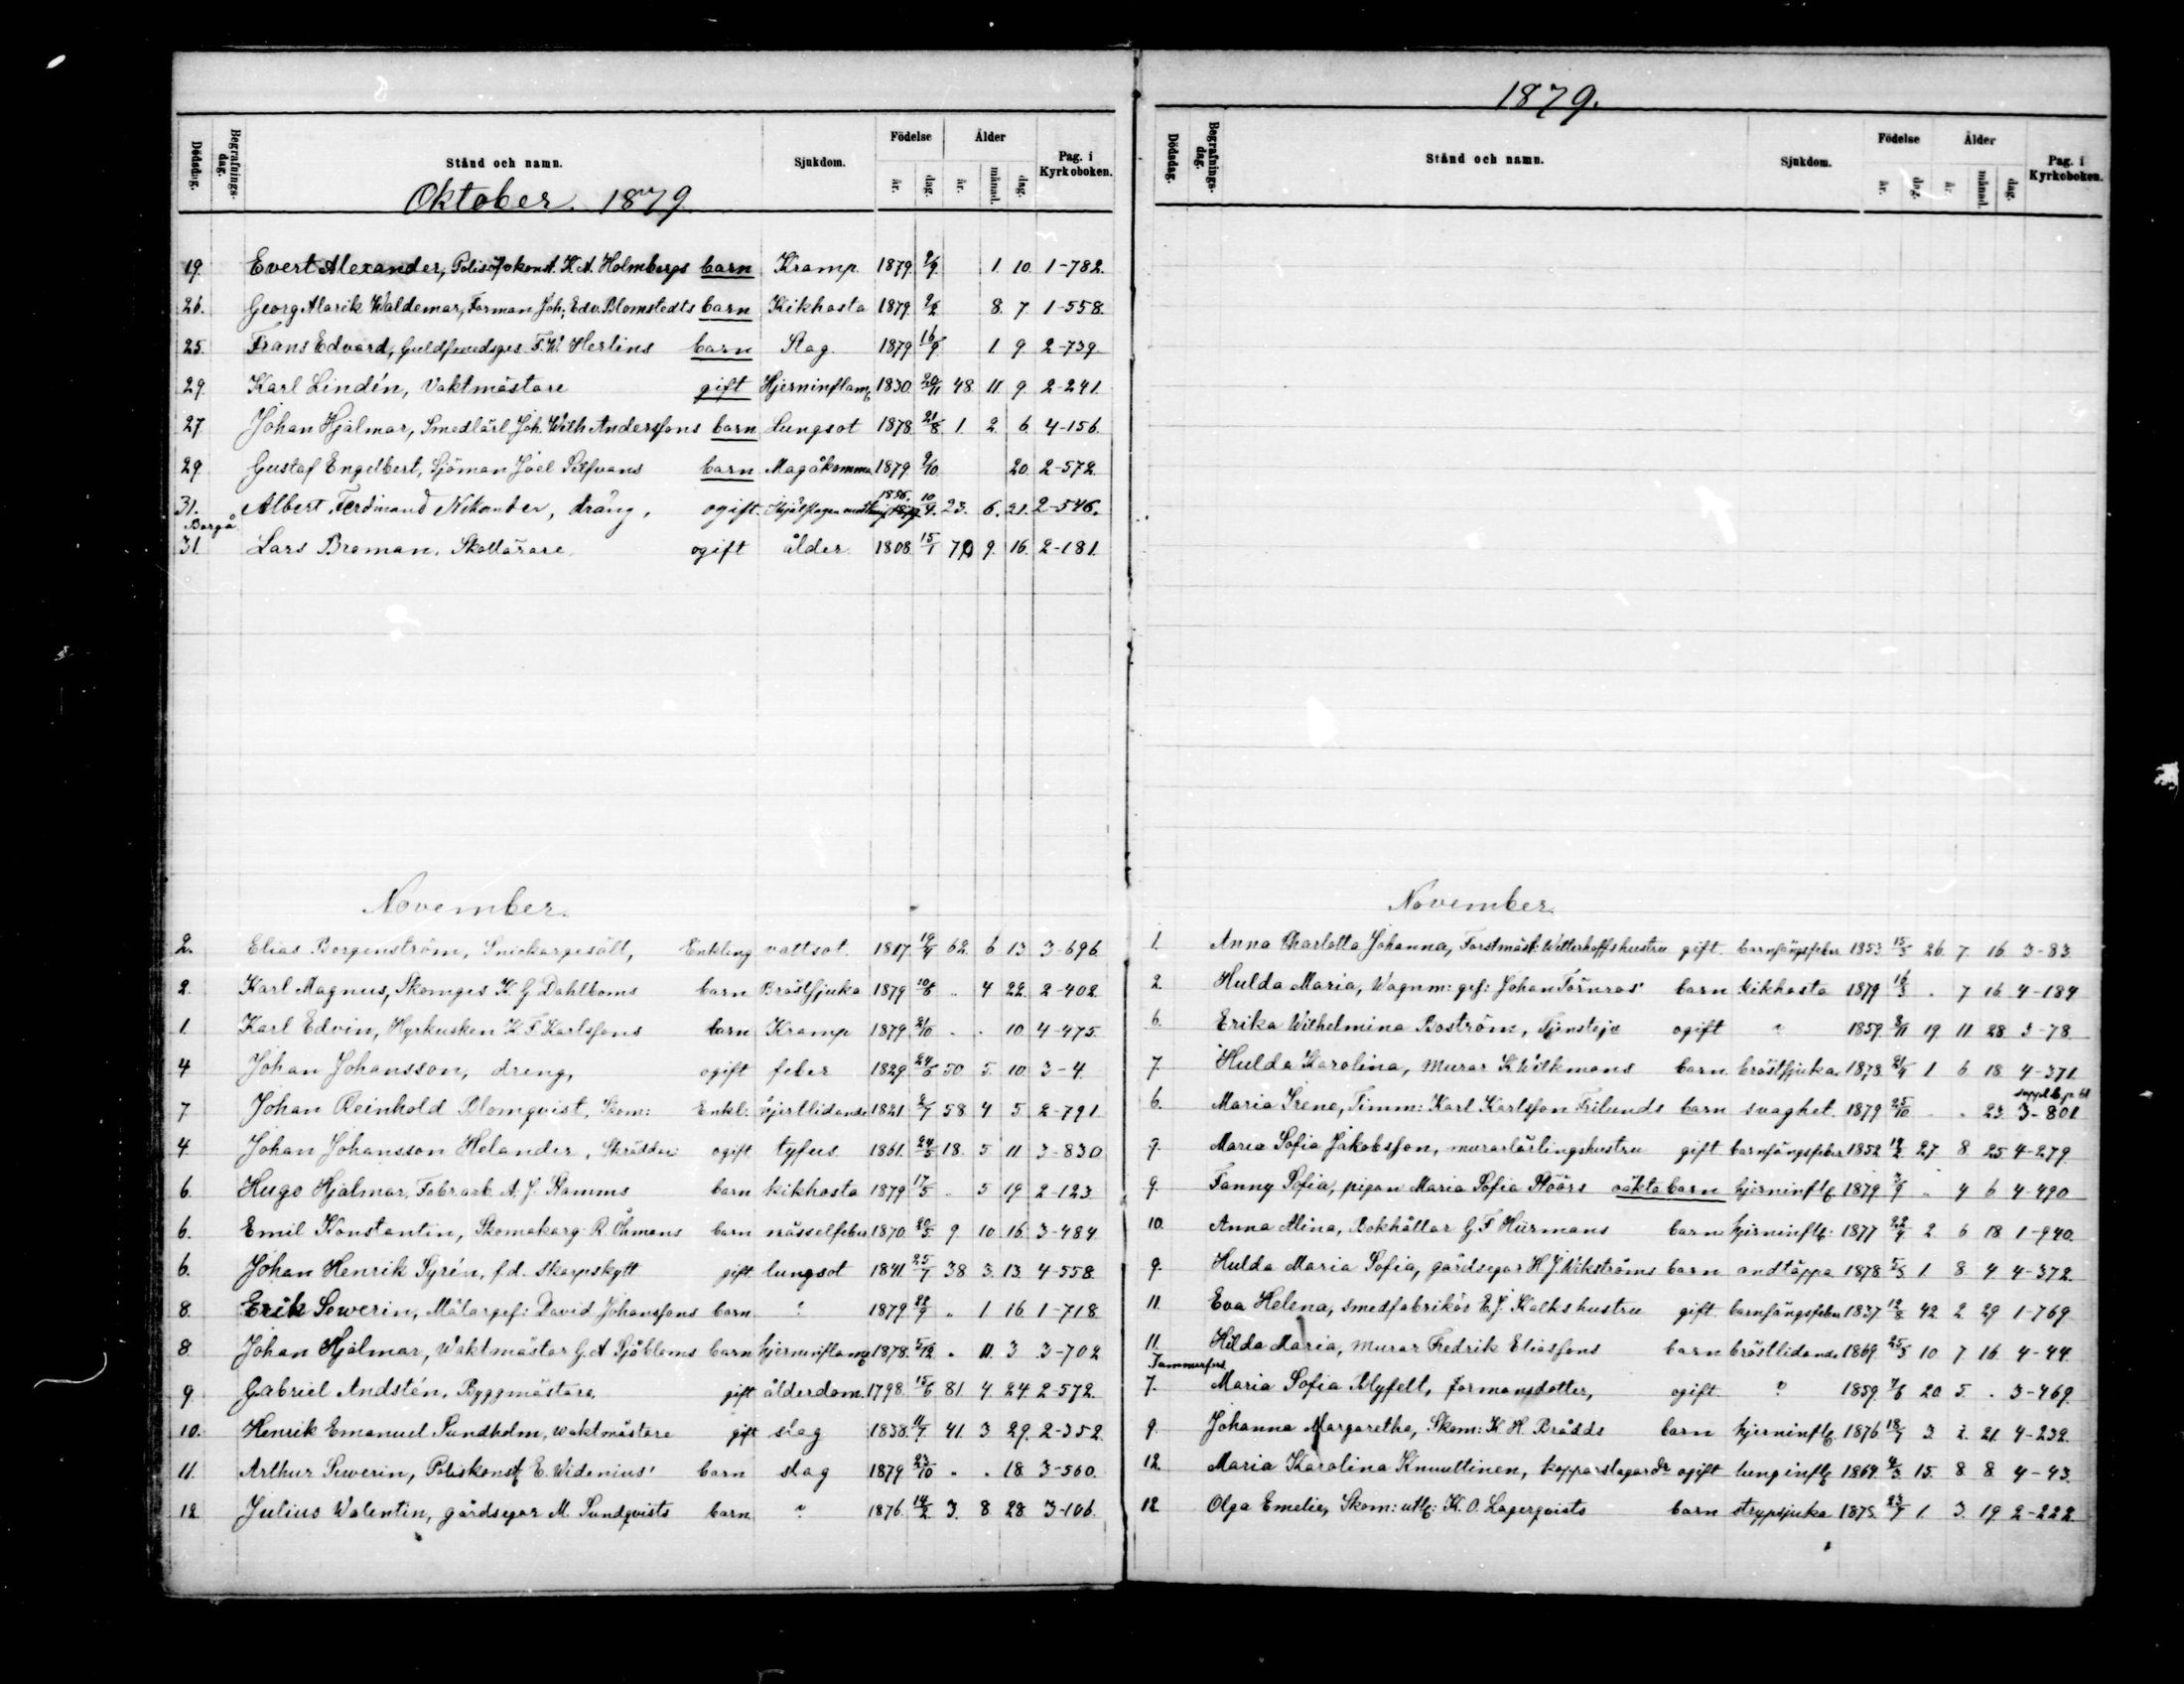 Dödsdag. Begrafnings-dag. Stånd och namn. Sjukdom. Födelse år. dag. Ålder år. månad. dag. Pag. i Kyrkoboken.
Oktober 1879
19. Evert Alexander, K. A. Holmbergs barn Kramp 1879 2/9 1. 10. 1-782.
26. Georg Alarik Waldemar, Forman Joh. Edv. Blomstedts barn Kikhosta 1879 8. 7. 1-558.
25. Frans Edvard, Guldsmedsges. F. W. Herlins barn Slag. 1879 16/9 1. 9. 2-739.
29. Karl Lindén, Vaktmästare gift Hjerninflam. 1830. 20/11 48. 11. 9. 2-241.
27. Johan Hjalmar, Smedlärl. Joh. Wilh Anderssons barn Lungsot 1878. 21/8 1. 2. 6. 4-156.
29. Gustaf Engelbert, Sjöman Joel barn Magåkomma 1879. 9/10 20. 2-572.
31. Borgå Albert Ferdinand Nikander, dräng, ogift. 1856. 10/9. 23. 6. 21. 2-546.
31 Lars Broman, Skollärare ogift ålder 1808. 15/1 70 9. 16. 2-181.
November.
2. Elias Borgenström, Snickargesäll, Enkling vattsot. 1817. 19/4 62. 6 13 3-696
2. Karl Magnus, Skomges K. G. Dahlboms barn Bröstsjuka 1879 10/6 .. 4 22. 2-402.
1. Karl Edvin, Hyrkusken K F Karlssons barn Kramp 1879. 21/10 . . 10 4-475.
4 Johan Johansson, dreng, ogift feber 1829. 24/5 50 5. 10. 3-4.
7 Johan Reinhold Blomqvist, Skom: Enkl: hjertlidande 1821. 2/7 58. 4 5 2-791
4 Johan Johansson Helander, Skräddar ogift tyfus 1861. 24/5 18. 5 11 3-830
6. Hugo Hjalmar, Fabrarb. A. J. Stamms barn kikhosta 1879 17/5 . 5 19 2-123.
6. Emil Konstantin, Skomakarg. R. Öhmans barn nässelfeber 1870. 20/5. 9. 10. 16. 3-484
6. Johan Henrik Syrén, f.d. skarpskytt gift. lungsot 1841. 25/7 38 3. 13. 4-558.
8. Erik Sewerin, Målarges: David Johanssons barn ? 1879. 22/9 .. 1 16 1-718
8. Johan Hjalmar, Waktmästar G. A Sjöbloms barn hjerninflam 1878. 5/12. . 11. 3 3-702
9. Gabriel Andstén, Byggmästare, gift ålderdom. 1798. 15/6 81. 4. 24. 2-572.
10. Henrik Emanuel Sundholm, waktmästare gift slag 1838. 11/7. 41. 3 29. 2-352.
11. Arthur Sewerin, Poliskonst E. Widenius' barn slag 1879 23/10 . . 18 3-560.
12 Julius Walentin, gårdsegar M. Sundqvists barn ? 1876. 14/2 3. 8 28 3-106.
1879.
Dödsdag. Begrafnings-dag. Stånd och namn. Sjukdom. Födelse år. dag. Ålder år. månad. dag. Pag. i Kyrkoboken.
November.
1. Anna Charlotta Johanna, Forstmäst: Witterhoffs hustru gift barnsängsfeber 1853. 15/3 26. 7. 16. 3-83.
2. Hulda Maria, Wagnm: ges: Johan Törnros' barn kikhosta 1879 16/3 . 7 16 4-184
6. Erika Wilhelmina Boström, ogift " 1859. 8/11 19 11 28 3-78
7. Hulda Karolina, Murar K Wilkmans barn bröstsjuka 1878. 21/4 1 6 18 4-371.
6. Maria Irene, Timm: Karl Karlsson Frilunds barn svaghet. 1879. 25/10 . . 23 3-801
7. Maria Sofia Jakobsson, murarlärlingshustru gift barnsängsfeber 1852 14/2 27 8. 25 4-279.
9. Fanny Sofia, pigan Maria Sofia Höörs oäkta barn hjerninflt 1879 3/7 .. 4 6 4-490
10. Anna Alina, Bokhållar G F Hürmans barn hjerninflt: 1877 22/4 2 6 18 1-940.
9. Hulda Maria Sofia, gårdsegar H J Wikströms barn andtäppa 1878 5/3 1. 8. 4 4-372.
11. Eva Helena, smedfabrikör E J Kalks hustru gift barnsängsfeber 1837. 12/8 42 2 29 1-769
11. Hilda Maria, Murar Fredrik Eliassons barn bröstlidande 1869 25/3 10 7 16 4-44.
Tammerfors 7. Maria Sofia Blyfelt, formansdotter, ogift. ? 1859. 7/6 20. 5. . 3-469.
9. Johanna Margaretha, Skom: K. H. Brådds barn hjerninflt. 1876 18/7 3. 2. 21. 4-232.
12. Maria Karolina Knuuttinen, kopparslagardr ogift lunginflt 1864. 4/3 15. 8. 8 4-43.
12 Olga Emelie, Skom: utl: K. O. Lagerqvists barn strypsjuka 1878. 23/7 1. 3. 19 2-222.